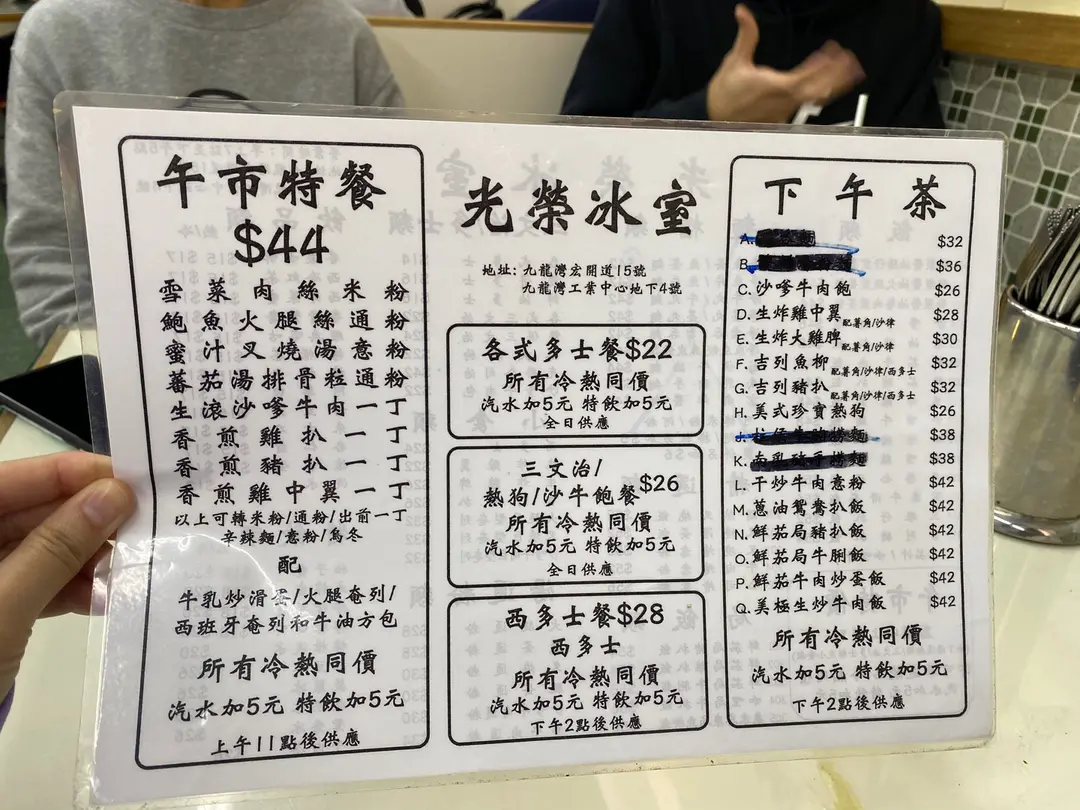 午市特餐
$44
雪菜肉絲米粉
鮑魚火腿絲通粉
蜜汁叉燒湯意粉
蕃茄湯排骨粒通粉
生滾沙嗲牛肉一丁
香煎雞扒一丁
香煎豬扒一丁
香煎雞中翼一丁
以上可轉米粉/通粉/出前一丁
辛辣麵/意粉/烏冬
配
牛乳炒滑蛋/火腿奄列/
西班牙奄列和牛油方包
所有冷熱同價
汽水加5元 特飲加5元
上午11點後供應
光榮冰室
地址: 九龍灣宏開道15號
九龍灣工業中心地下4號
各式多士餐$22
所有冷熱同價
汽水加5元 特飲加5元
全日供應
三文治/
熱狗/沙牛飽餐$26
所有冷熱同價
汽水加5元 特飲加5元
全日供應
西多士餐$28
西多士
所有冷熱同價
汽水加5元 特飲加5元
下午2點後供應
下午茶
A. $32
B. $36
C. 沙嗲牛肉飽 $26
D. 生炸雞中翼配薯角/沙律 $28
E. 生炸大雞脾配薯角/沙律 $30
F. 吉列魚柳配薯角/沙律/西多士 $32
G. 吉列豬扒配薯角/沙律/西多士 $32
H. 美式珍寶熱狗 $26
J. $38
K. 南乳豬手撈麵 $38
L. 干炒牛肉意粉 $42
M. 蔥油鴛鴦扒飯 $42
N. 鮮茄局豬扒飯 $42
O. 鮮茄局牛脷飯 $42
P. 鮮茄牛肉炒蛋飯 $42
Q. 美極生炒牛肉飯 $42
所有冷熱同價
汽水加5元 特飲加5元
下午2點後供應